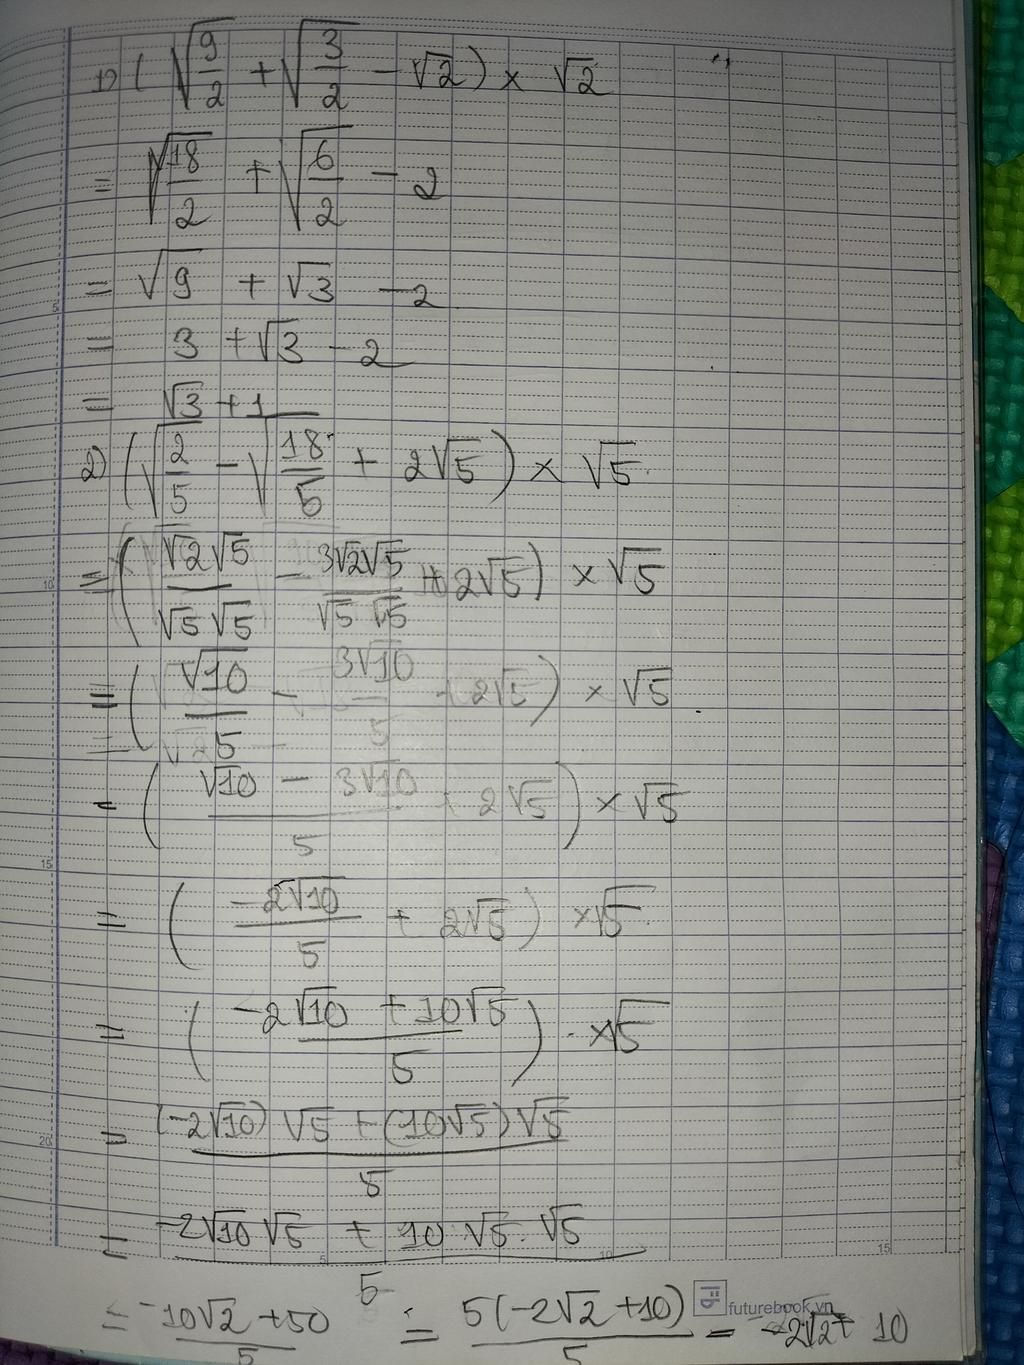 1) (√(9/2) + √(3/2) - √2) × √2
= √(18/2) + √(6/2) - 2
= √9 + √3 - 2
= 3 + √3 - 2
= √3 + 1
2) (√(2/5) - √(18/5) + 2√5) × √5
= (√2√5/√5√5 - 3√2√5/√5√5 + 2√5) × √5
= (√10/5 - 3√10/5 + 2√5) × √5
= ((√10 - 3√10)/5 + 2√5) × √5
= (-2√10/5 + 2√5) × √5
= ((-2√10 + 10√5)/5) · × √5
= ((-2√10)√5 + (10√5)√5)/5
= (-2√10√5 + 10·√5·√5)/5
= (-10√2 + 50)/5 = 5(-2√2 + 10)/5 = -2√2 + 10
futurebook.vn
5
10
15
20
5
10
15